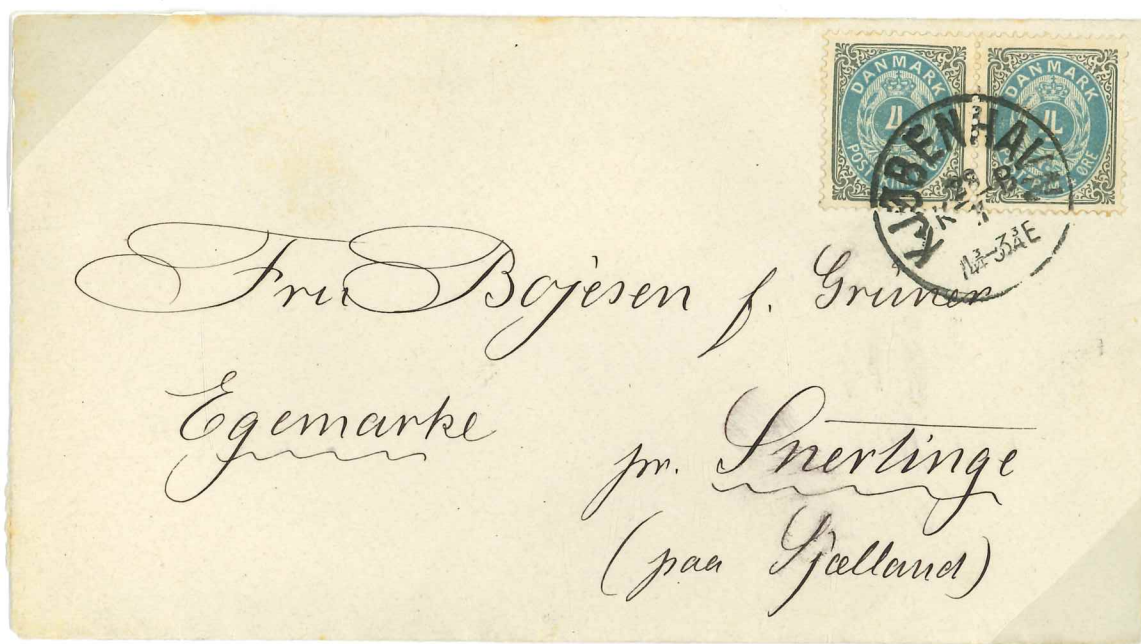 DANMARK
4
POST
DANMARK
4
ØRE
KJØBENHAVN
K
Fru Bojesen f. Grüner
Egemarke
pr. Snertinge
(paa Sjælland)